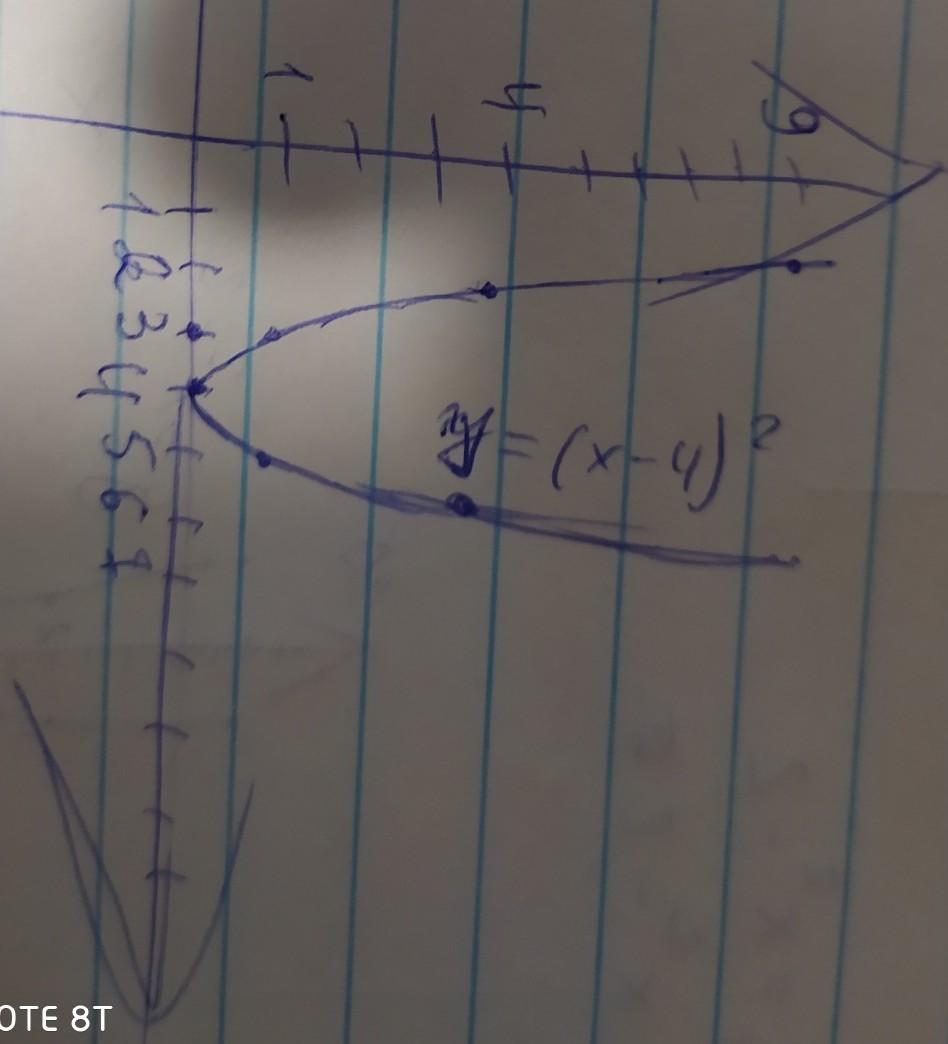 1
4
9
y = (x-4)²
1 2 3 4 5 6 7
OTE 8T